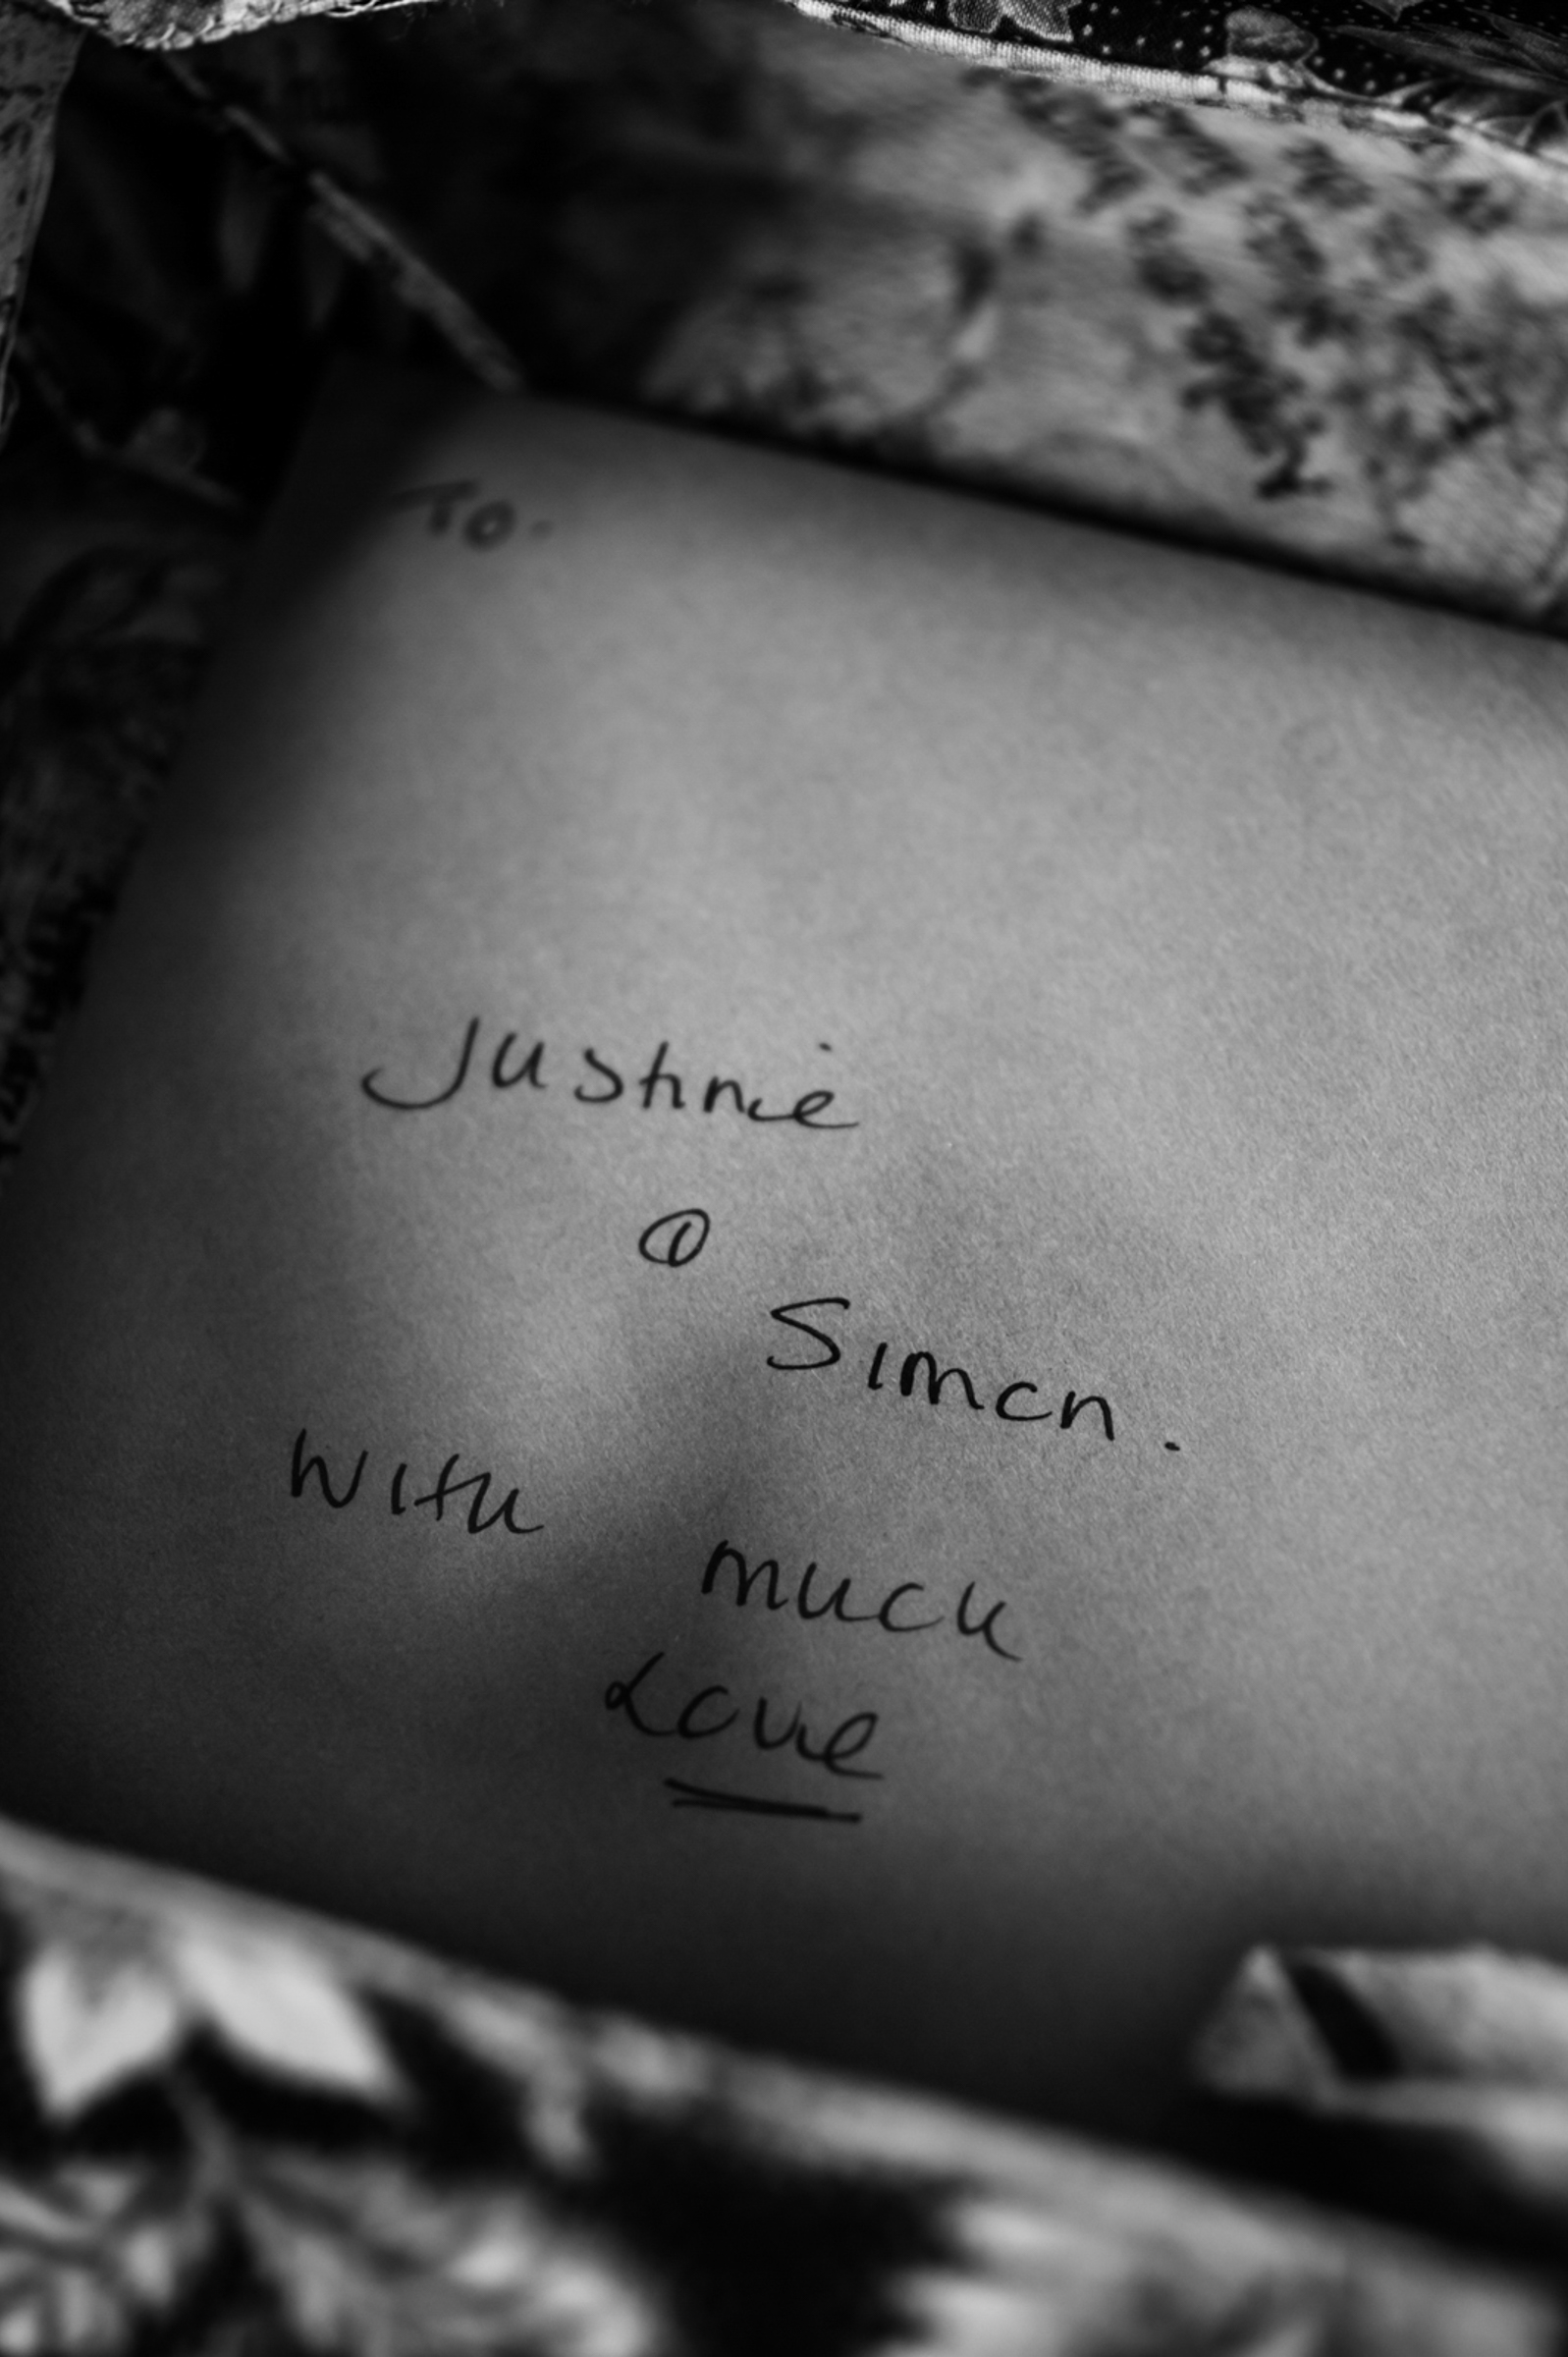 To-
Justine
@
Simon.
With
much
Love